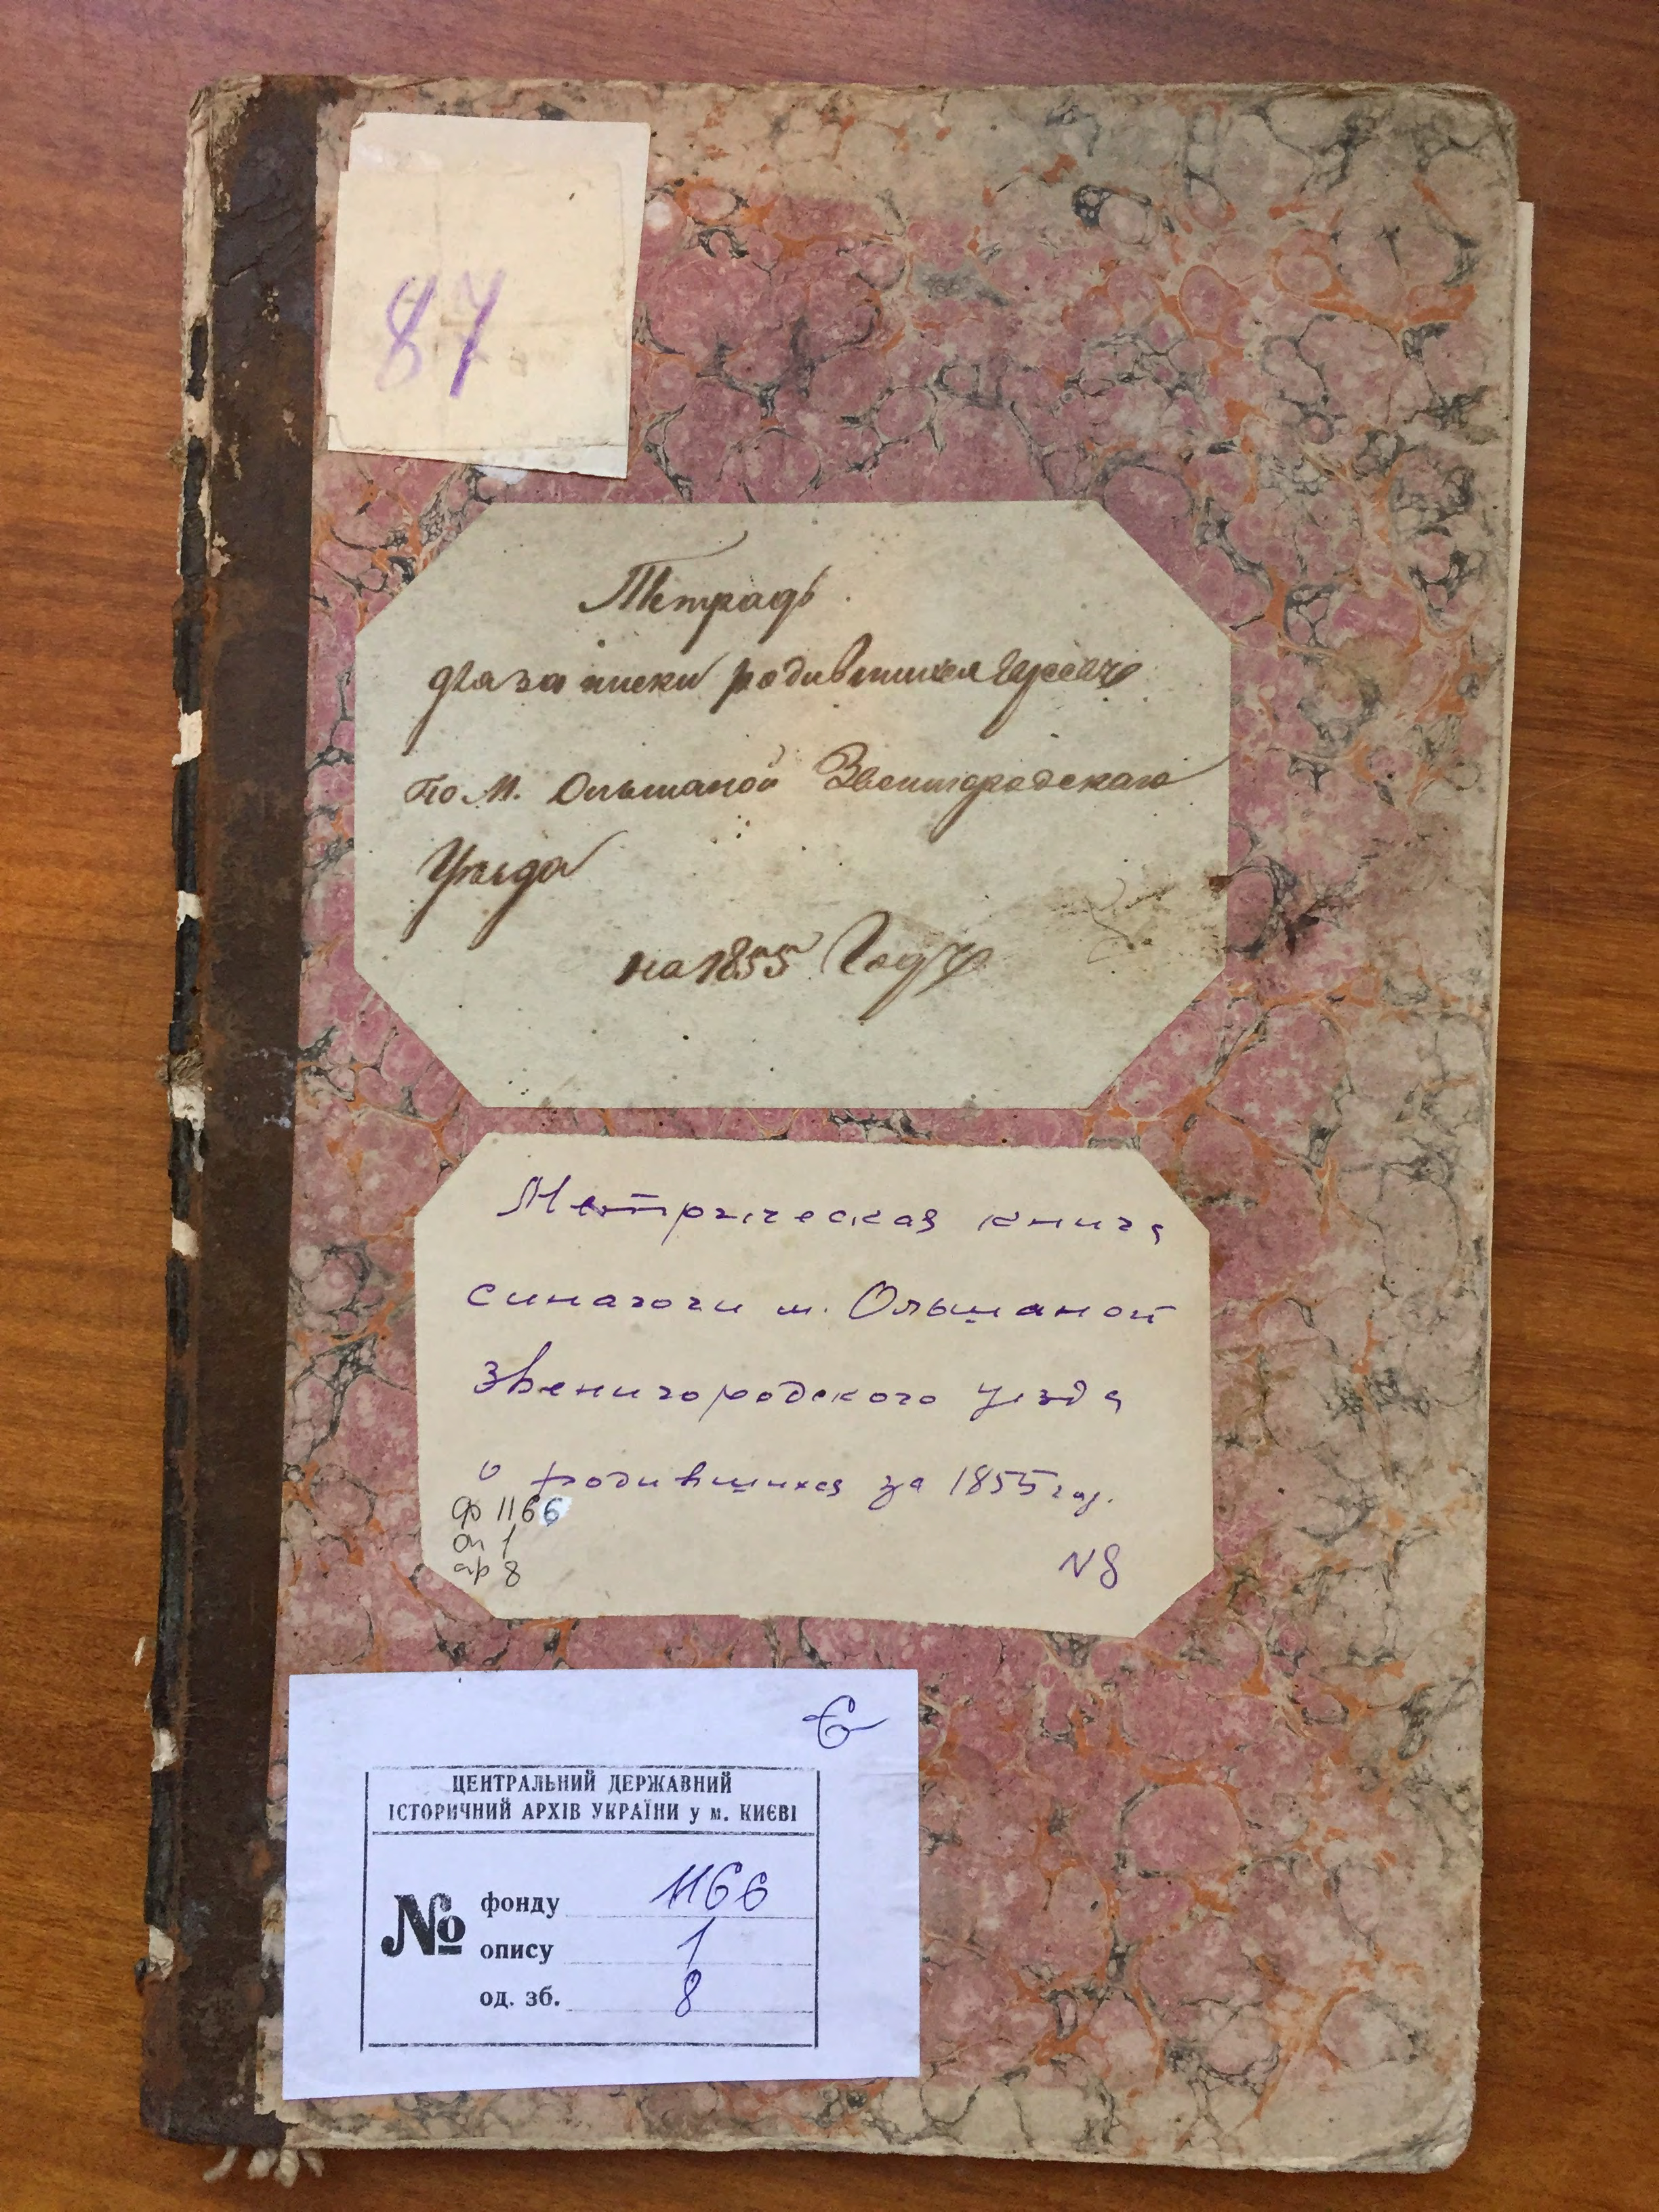 87
Тетрадь
для записки родившихся Евреевъ
по М. Ольшаной Звенигородскаго
Уѣзда
на 1855 Годъ
Метрическая книга
синагоги м. Ольшаной
Звенигородского уезда
о родившихся за 1855 год.
ф 1166
оп 1
ар 8
N8
Є
ЦЕНТРАЛЬНИЙ ДЕРЖАВНИЙ
ІСТОРИЧНИЙ АРХІВ УКРАЇНИ у м. КИЄВІ
№
фонду 1166
опису 1
од. зб. 8